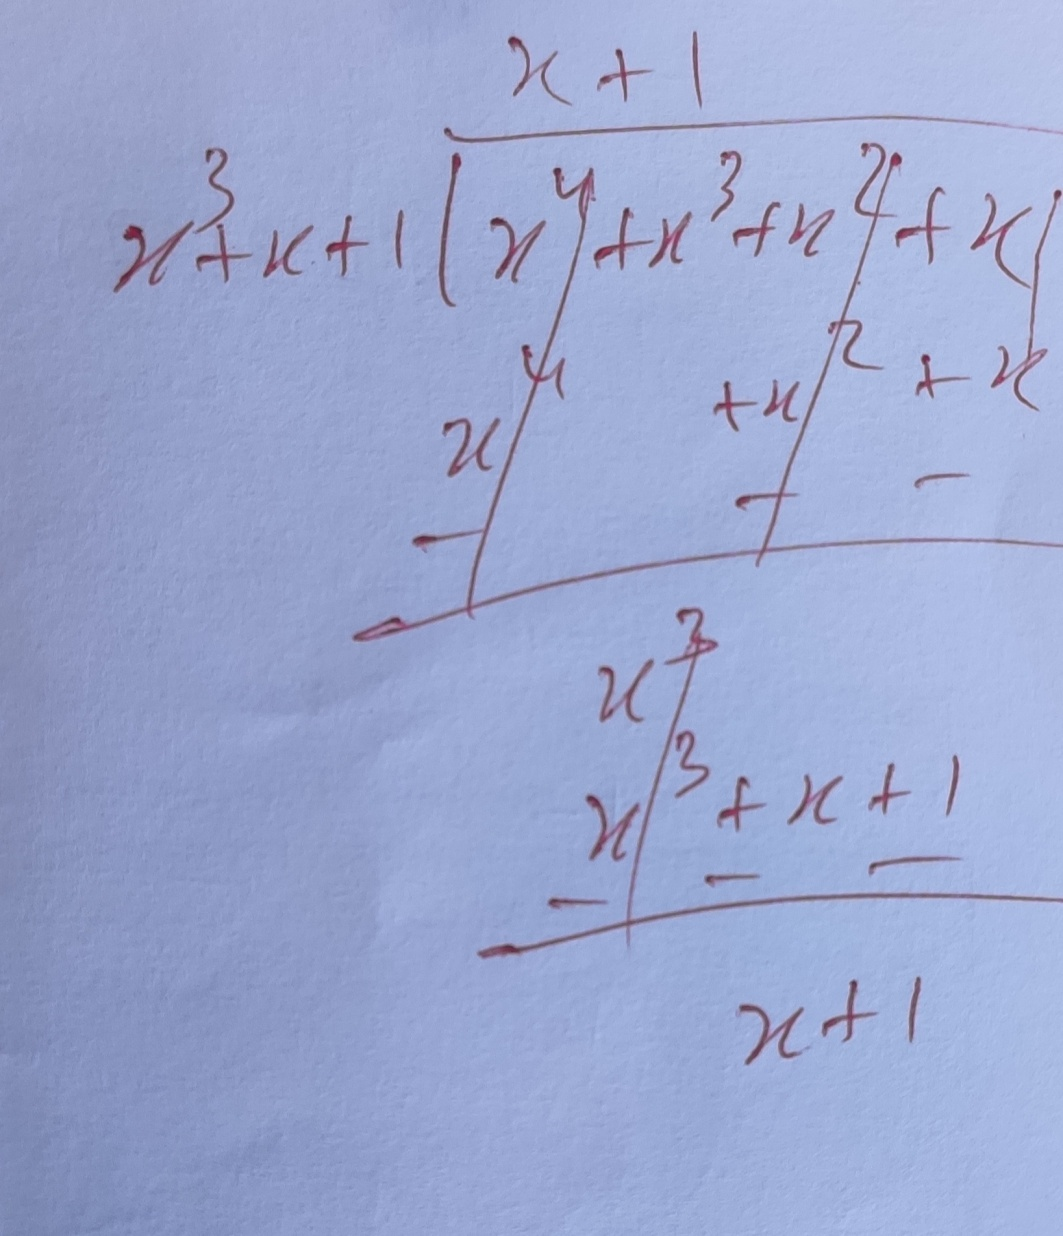 x + 1
x³ + x + 1 ( x⁴ + x³ + x² + x
x⁴ + x² + x
− − −
x³
x³ + x + 1
− − −
x + 1